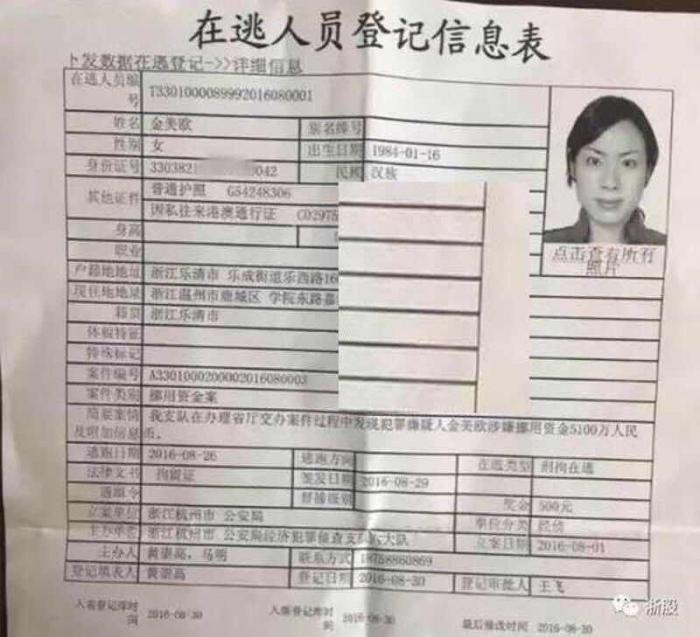 在逃人员登记信息表
卜发数据在逃登记->>详细信息
在逃人员编号 T3301000089992016080001
姓名 金美欧 别名绰号
性别 女 出生日期 1984-01-16
身份证号 3303821 0042 民族 汉族
其他证件 普通护照 G54248306
因私往来港澳通行证 C02975
身高
职业
点击查看所有照片
户籍地地址 浙江乐清市 乐成街道乐西路16
现住地地址 浙江温州市鹿城区 学院东路嘉
籍贯 浙江乐清市
体貌特征
特殊标记
案件编号 A3301000200002016080003
案件类别 挪用资金案
简要案情及附加信息 我支队在办理省厅交办案件过程中发现犯罪嫌疑人金美欧涉嫌挪用资金5100万人民币。
逃跑日期 2016-08-26 逃跑方向 在逃类型 刑拘在逃
法律文书 拘留证 签发日期 2016-08-29
通缉令 督捕级别 奖金 500元
立案单位 浙江杭州市 公安局 单位分类 经侦
主办单位 浙江杭州市 公安局经济犯罪侦查支队 大队 立案日期 2016-08-01
主办人 黄崇高，马明 联系方式 18758860869
登记填表人 黄崇高 登记日期 2016-08-30 登记审批人 王飞
入省登记库时间 2016-08-30 入部登记库时间 2016-08-30 最后修改时间 2016-08-30
浙股